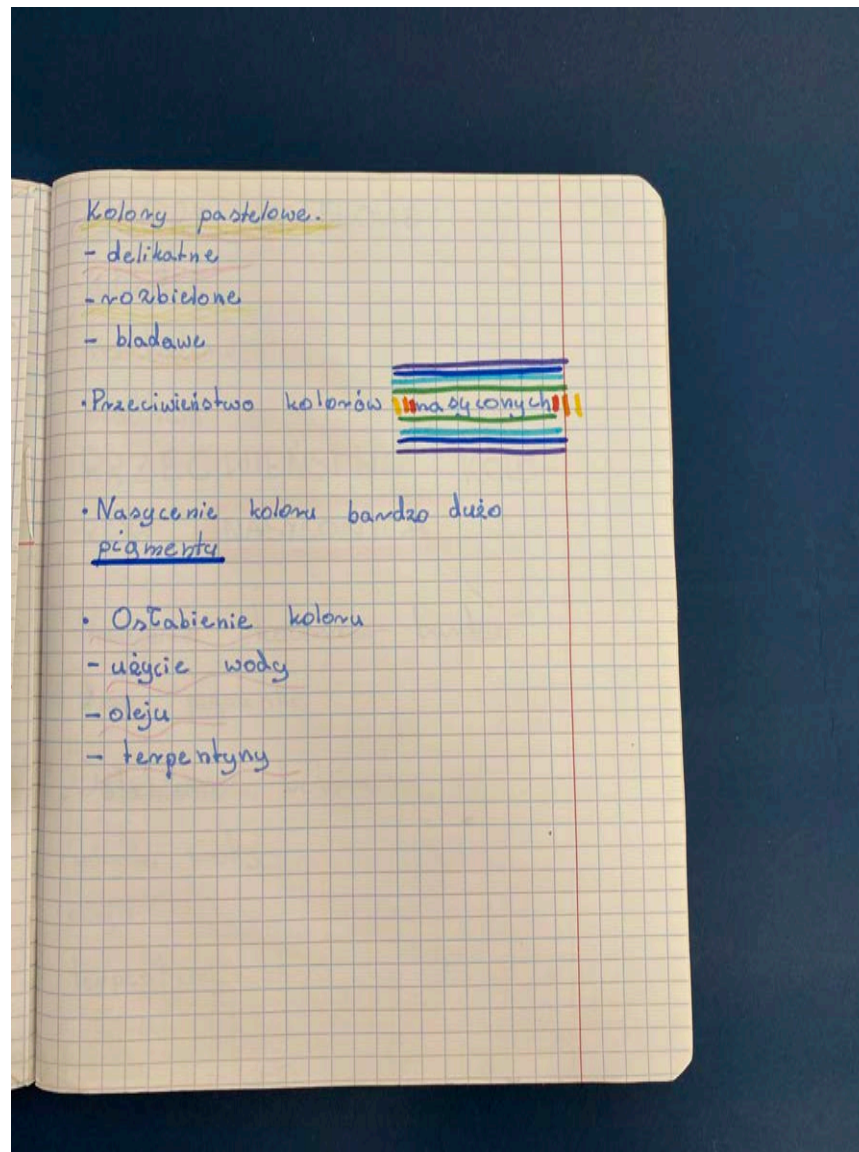 Kolory pastelowe.
- delikatne
- rozbielone
- bladawe
• Przeciwieństwo kolorów nasyconych
• Nasycenie koloru bardzo dużo
pigmentu
• Osłabienie koloru
- użycie wody
- oleju
- terpentyny